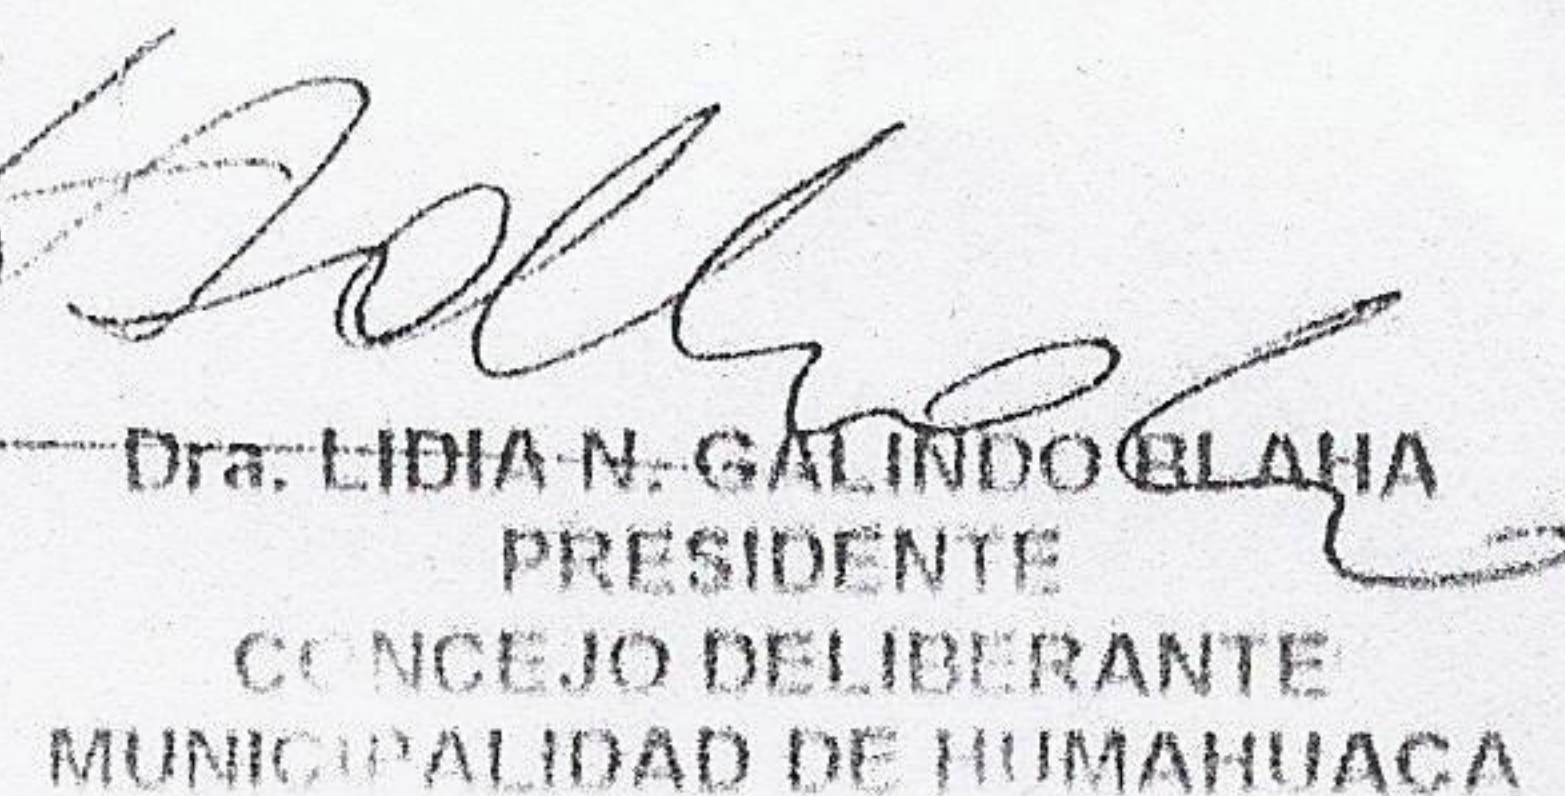 Dra. LIDIA N. GALINDO BLAHA
PRESIDENTE
CONCEJO DELIBERANTE
MUNICIPALIDAD DE HUMAHUACA